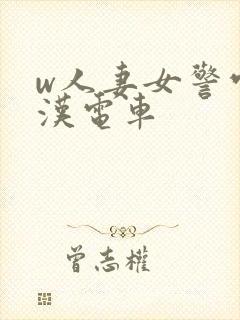 w人妻女警
漢電車
曾志權